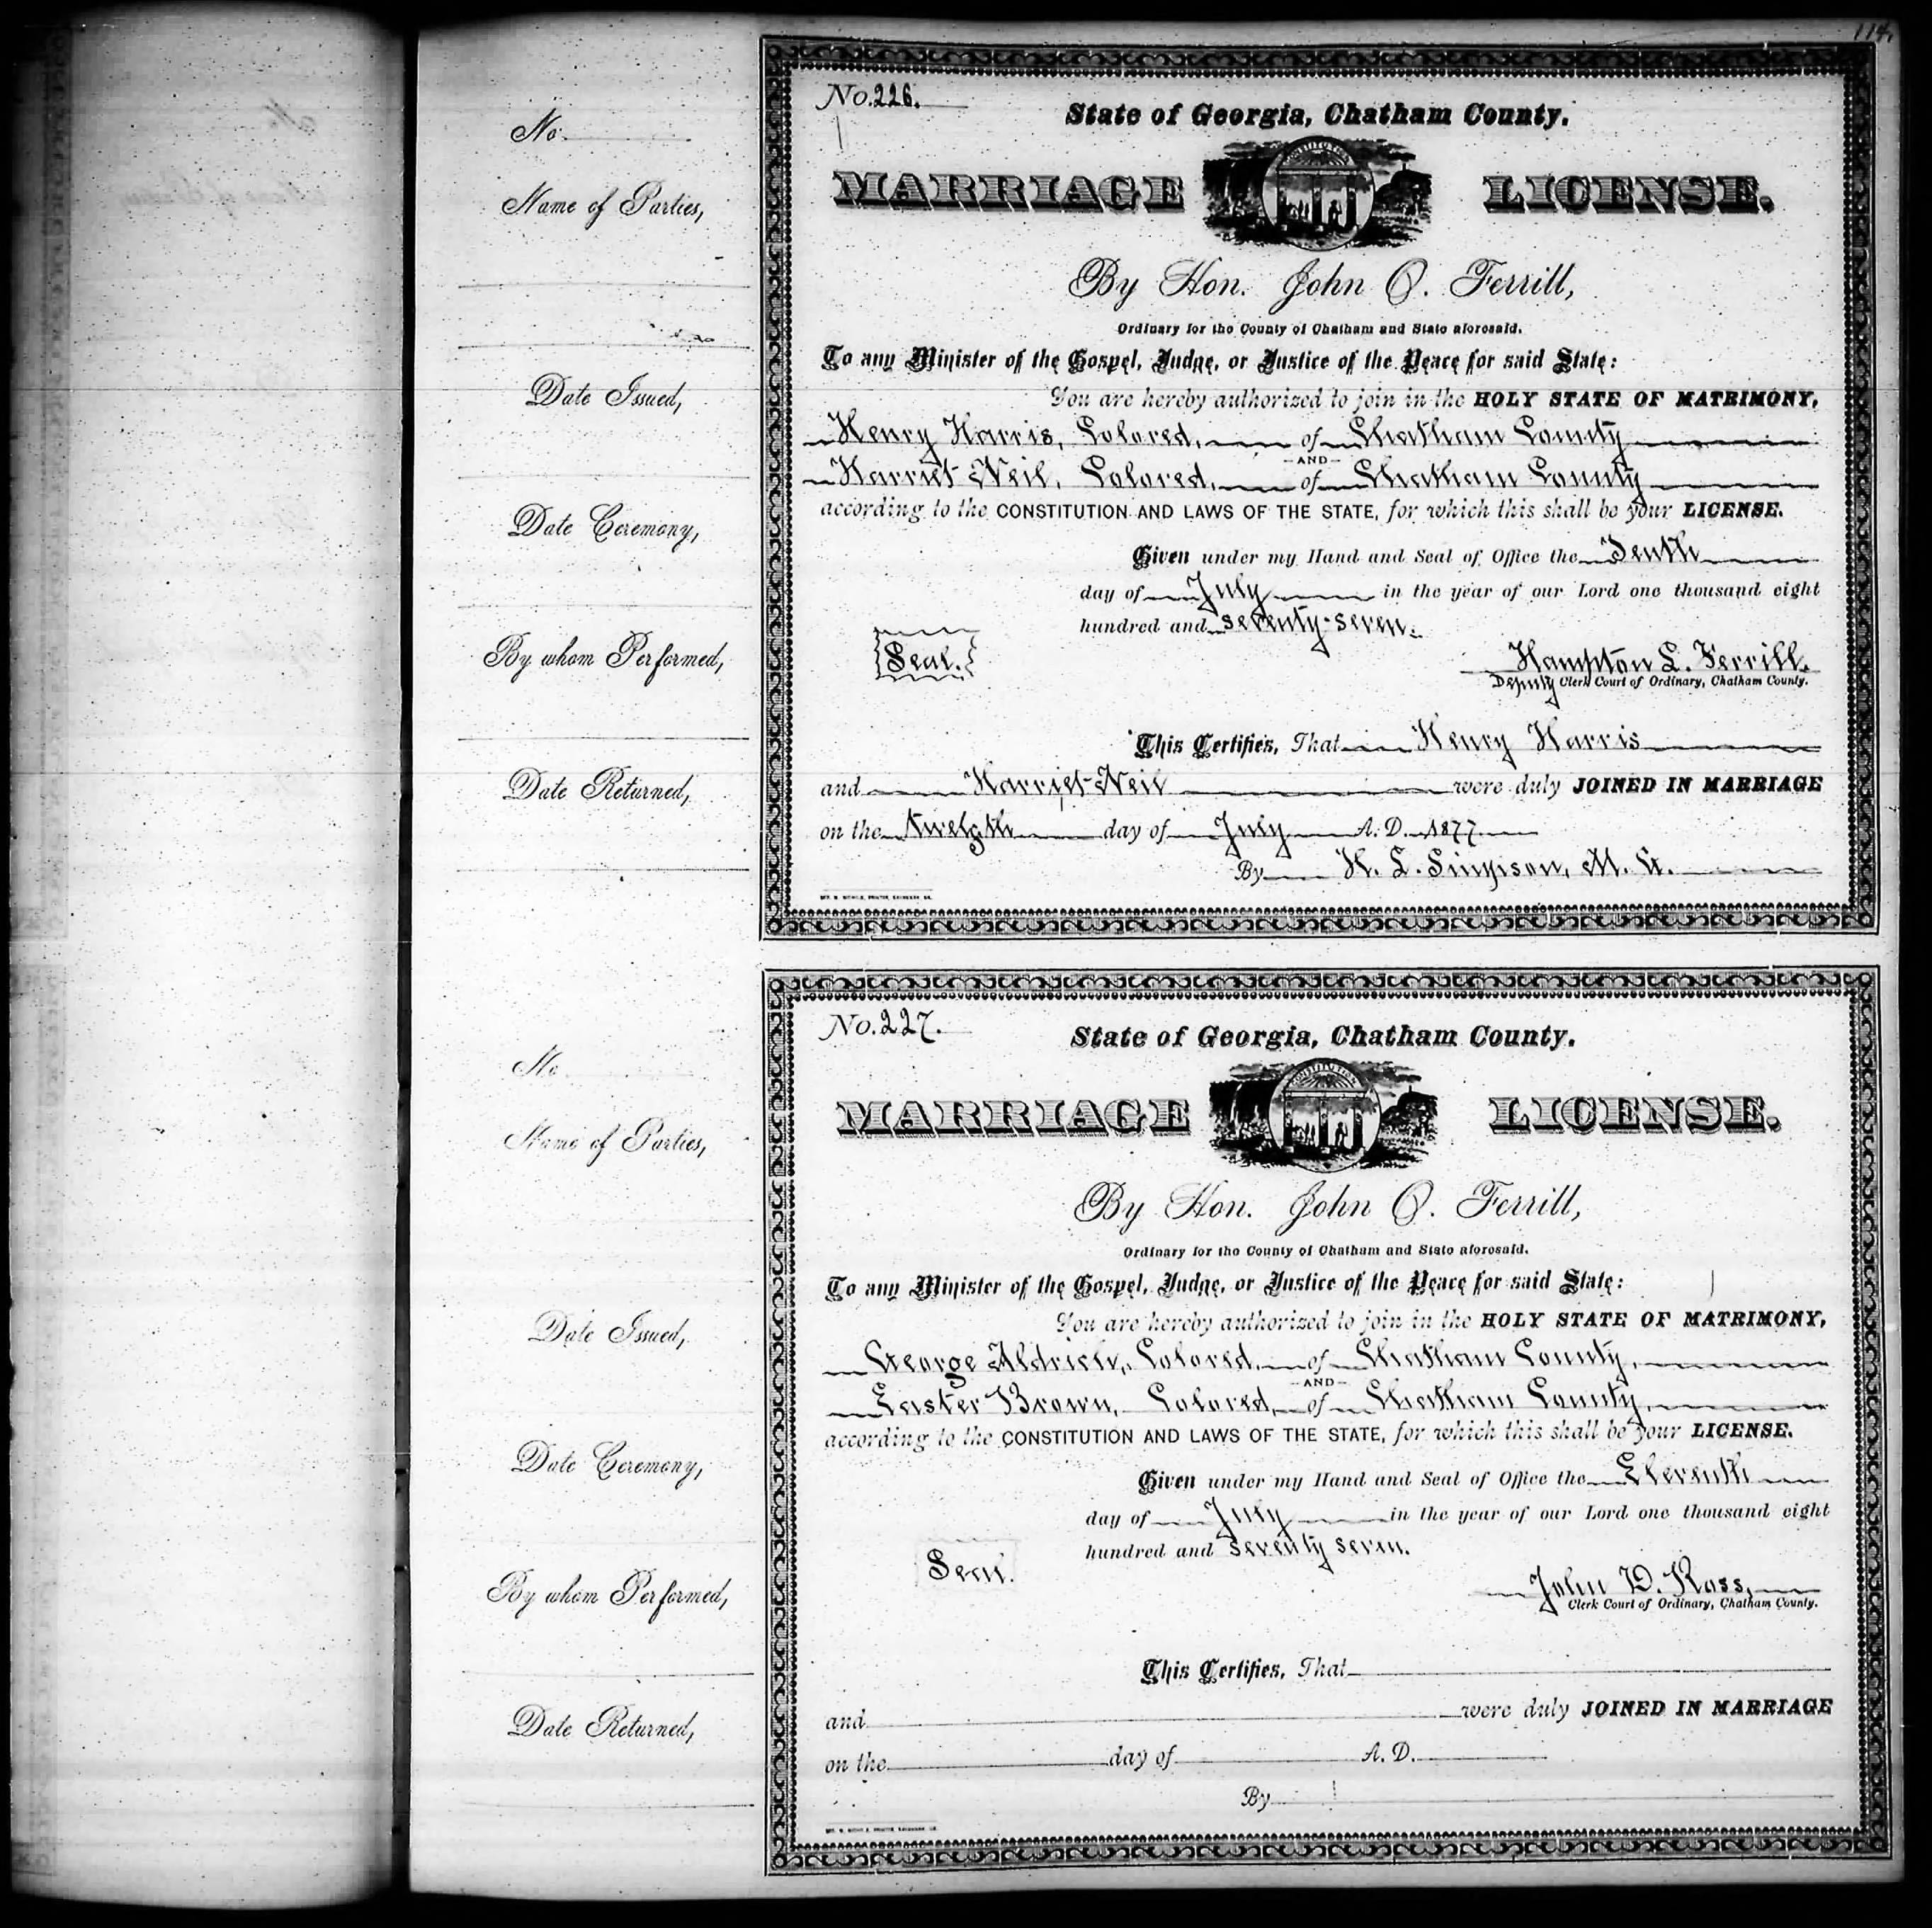 114.
No.
Name of Parties,
Date Issued,
Date Ceremony,
By whom Performed,
Date Returned,
No. 226.
State of Georgia, Chatham County.
MARRIAGE LICENSE.
By Hon. John O. Ferrill,
Ordinary for the County of Chatham and State aforesaid.
To any Minister of the Gospel, Judge, or Justice of the Peace for said State:
You are hereby authorized to join in the HOLY STATE OF MATRIMONY,
Henry Harris, Colored, of Chatham County
AND
Harriet Neil, Colored, of Chatham County
according to the CONSTITUTION AND LAWS OF THE STATE, for which this shall be your LICENSE.
Given under my Hand and Seal of Office the Tenth
day of July in the year of our Lord one thousand eight
hundred and seventy-seven.
Seal.
Hampton L. Ferrill.
Deputy Clerk Court of Ordinary, Chatham County.
This Certifies, That Henry Harris
and Harriet Neil were duly JOINED IN MARRIAGE
on the twelfth day of July A. D. 1877
By H. L. Simpson, M. G.
No.
Name of Parties,
Date Issued,
Date Ceremony,
By whom Performed,
Date Returned,
No. 227.
State of Georgia, Chatham County.
MARRIAGE LICENSE.
CONSTITUTION
By Hon. John O. Ferrill,
Ordinary for the County of Chatham and State aforesaid.
To any Minister of the Gospel, Judge, or Justice of the Peace for said State:
You are hereby authorized to join in the HOLY STATE OF MATRIMONY,
George Aldrich, Colored, of Chatham County,
AND
Easter Brown, Colored, of Chatham County,
according to the CONSTITUTION AND LAWS OF THE STATE, for which this shall be your LICENSE.
Given under my Hand and Seal of Office the Eleventh
day of July in the year of our Lord one thousand eight
hundred and seventy seven.
Seal.
John D. Ross,
Clerk Court of Ordinary, Chatham County.
This Certifies, That
and were duly JOINED IN MARRIAGE
on the day of A. D.
By